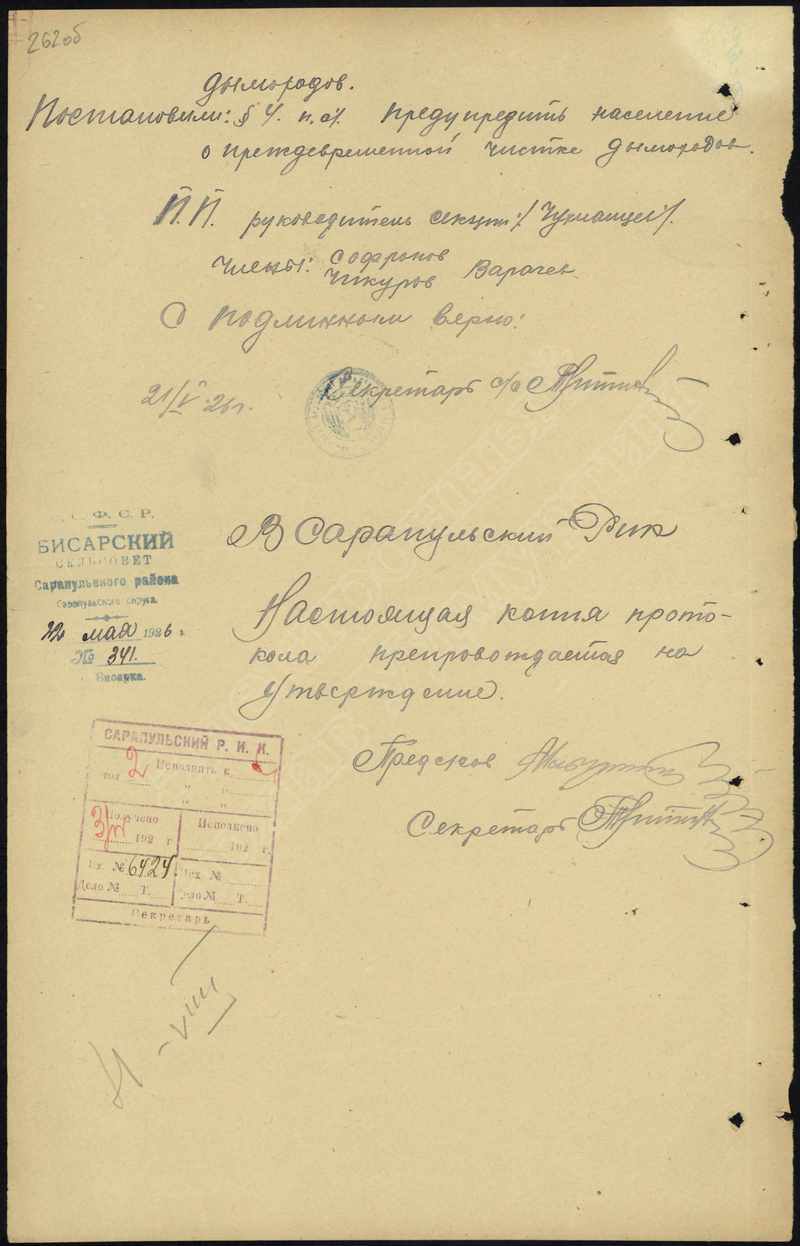 262об
дымоходов.
Постановили: § 4. п. а/. Предупредить население
о преждевременной чистке дымоходов.
П.П. руководитель секции:/
Члены: Софронов
Чикуров
С подлинным верно:
Секретарь с/с
21/V 26г.
Ф. С. Р.
БИСАРСКИЙ
СЕЛЬСОВЕТ
Сарапульского района
Сарапульского округа.
22 мая 1926 г.
№ 341.
Бисарка.
В Сарапульский Рик
Настоящая копия прото-
кола препровождается на
утверждение.
Предсков
Секретарь
САРАПУЛЬСКИЙ Р. И. К.
2 Исполнить к
Получено Исполнено
192 г. 192 г.
Вх. № 6424. Исх. №
Дело № Т. Дело № Т.
Секретарь
VIII